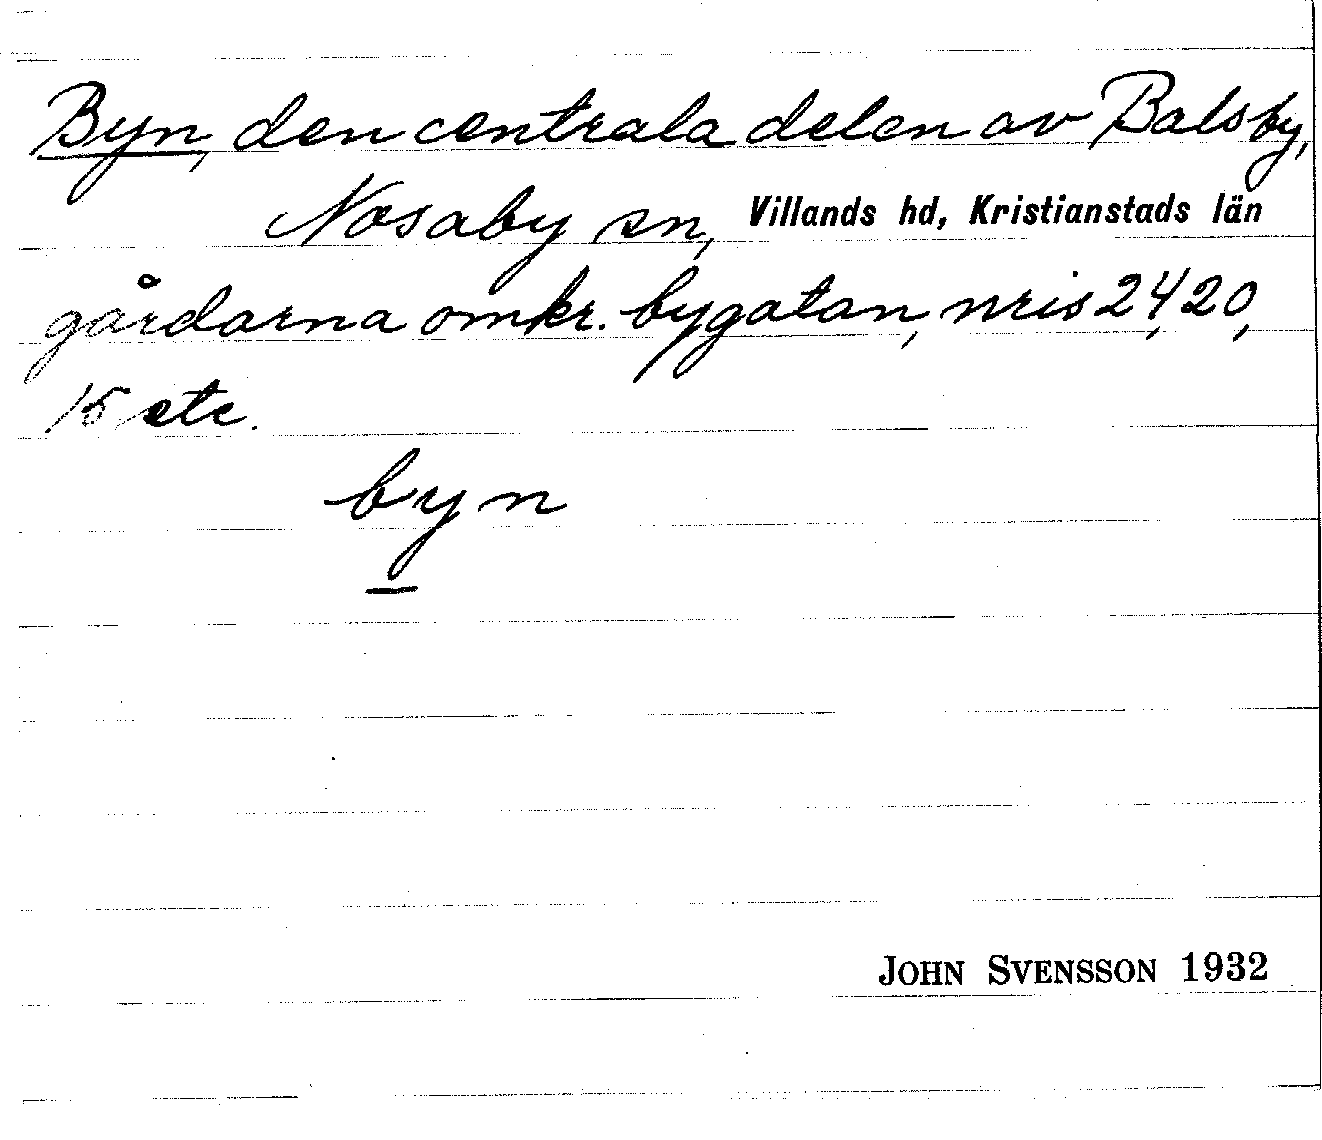 Byn, den centrala delen av Balsby,
Nosaby sn, Villands hd, Kristianstads län
gårdarna omkr. bygatan, nris 24, 20,
15 etc.
byn
JOHN SVENSSON 1932